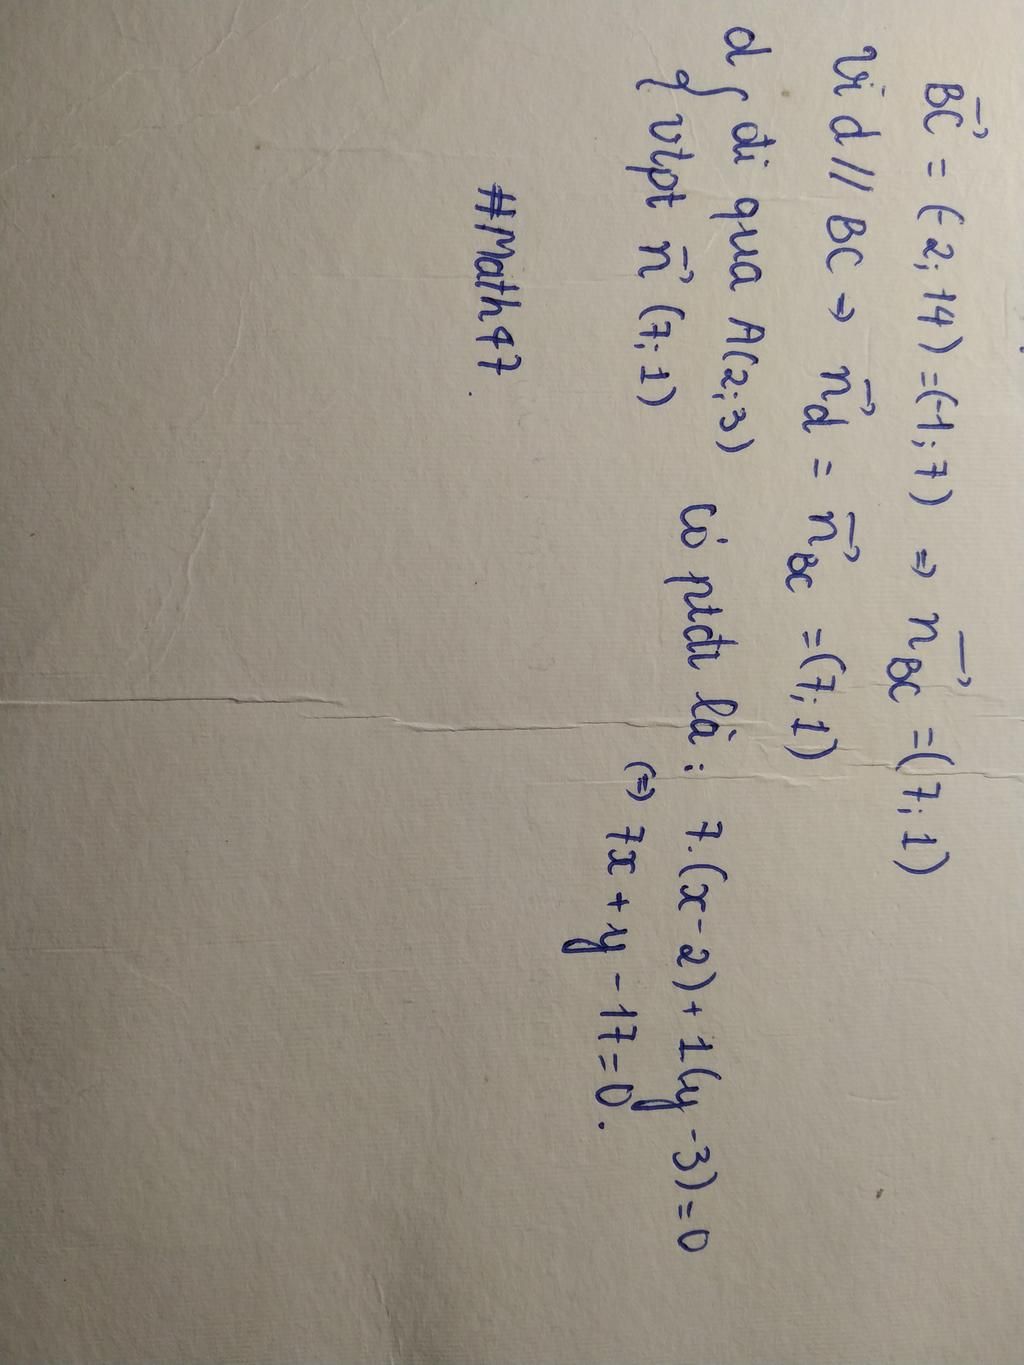 BC→ = (-2; 14) = (-1; 7) ⇒ n→BC = (7; 1)
Vì d // BC ⇒ n→d = n→BC = (7; 1)
d { đi qua A(2; 3)
vtpt n→ (7; 1)
có ptđt là : 7.(x-2) + 1(y-3) = 0
(⇒) 7x + y - 17 = 0.
#Math47.